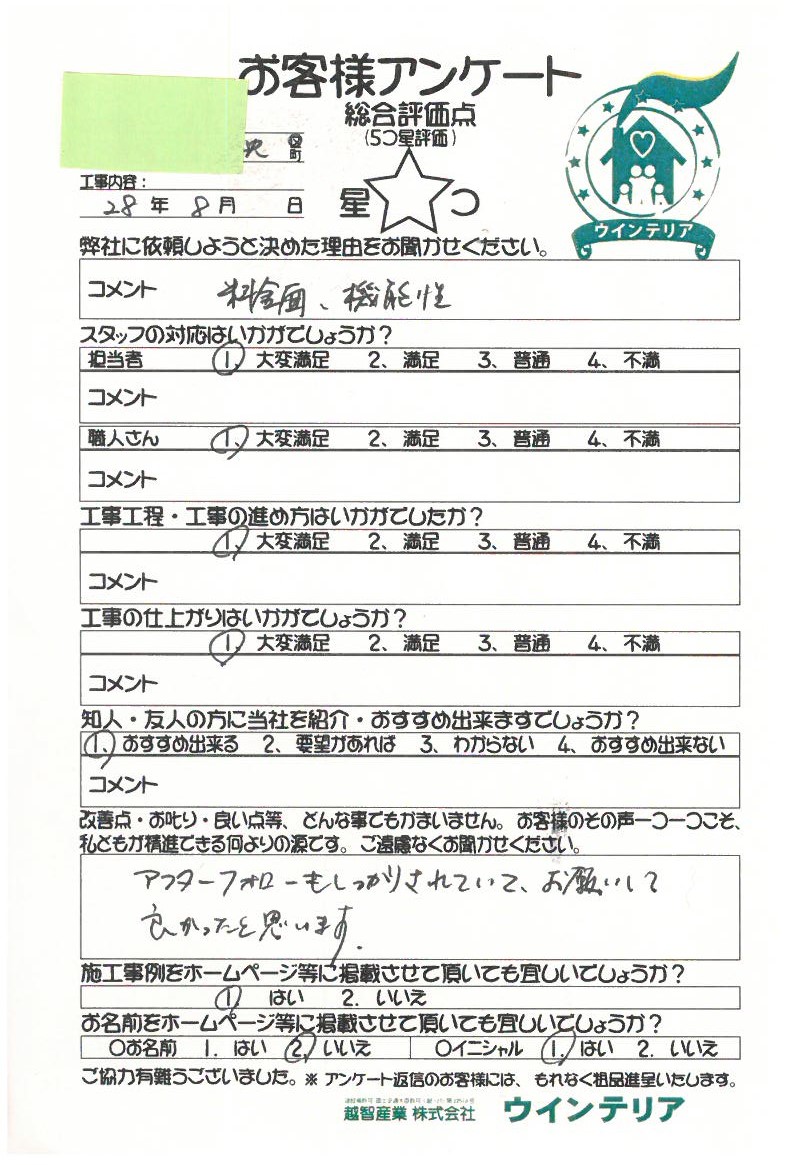 お客様アンケート
総合評価点
(5つ星評価)
央 区町
工事内容：
28年 8月 日
星☆つ
ウインテリア
弊社に依頼しようと決めた理由をお聞かせください。
コメント 料金面、機能性
スタッフの対応はいかがでしょうか？
担当者 1、大変満足 2、満足 3、普通 4、不満
コメント
職人さん 1、大変満足 2、満足 3、普通 4、不満
コメント
工事工程・工事の進め方はいかがでしたか？
1、大変満足 2、満足 3、普通 4、不満
コメント
工事の仕上がりはいかがでしょうか？
1、大変満足 2、満足 3、普通 4、不満
コメント
知人・友人の方に当社を紹介・おすすめ出来ますでしょうか？
1、おすすめ出来る 2、要望があれば 3、わからない 4、おすすめ出来ない
コメント
改善点・お叱り・良い点等、どんな事でもかまいません。お客様のその声一つ一つこそ、
私どもが精進できる何よりの源です。ご遠慮なくお聞かせください。
アフターフォローもしっかりされていて、お願いして
良かったと思います。
施工事例をホームページ等に掲載させて頂いても宜しいでしょうか？
1. はい 2. いいえ
お名前をホームページ等に掲載させて頂いても宜しいでしょうか？
○お名前 1. はい 2. いいえ ○イニシャル 1. はい 2. いいえ
ご協力有難うございました。※ アンケート返信のお客様には、もれなく粗品進呈いたします。
越智産業 株式会社 ウインテリア